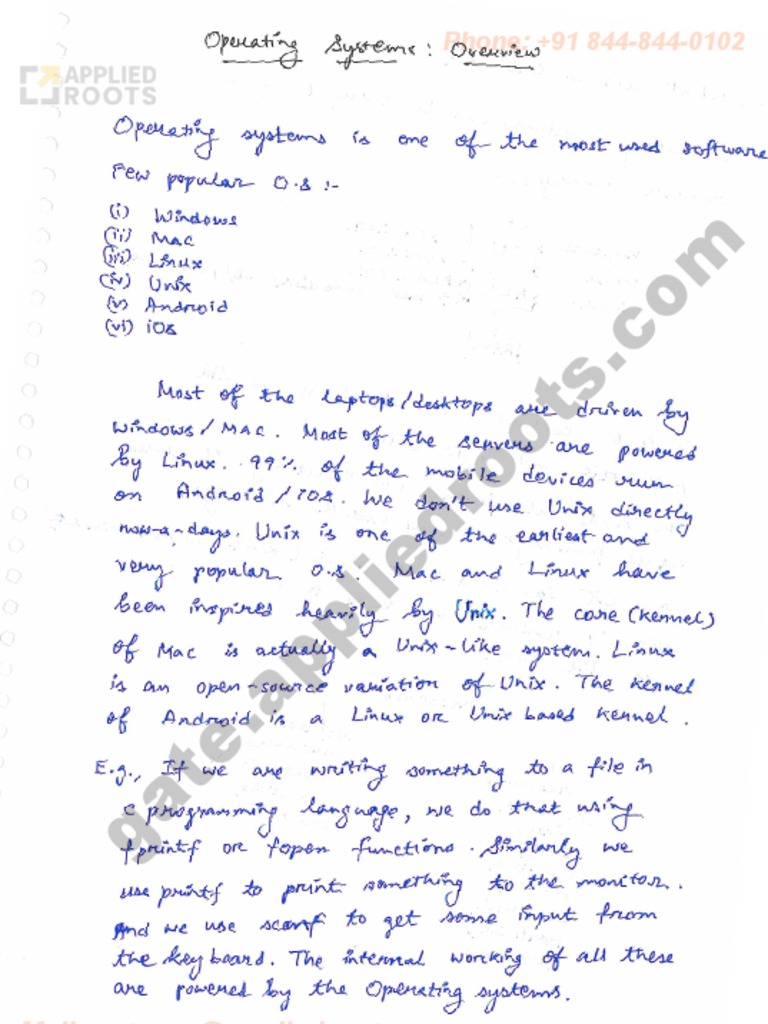 Phone: +91 844-844-0102
Operating Systems: Overview
APPLIED
ROOTS
Operating systems is one of the most used software
Few popular O.S :-
(i) Windows
(ii) Mac
(iii) Linux
(iv) Unix
(v) Android
(vi) iOS
Most of the laptops/desktops are driven by
Windows/Mac. Most of the servers are powered
by Linux. 99% of the mobile devices run
on Android/iOS. We don't use Unix directly
now-a-days. Unix is one of the earliest and
very popular O.S. Mac and Linux have
been inspired heavily by Unix. The core (kernel)
of Mac is actually a Unix-like system. Linux
is an open-source variation of Unix. The kernel
of Android is a Linux or Unix based kernel.
E.g., If we are writing something to a file in
C programming language, we do that using
fprintf or fopen functions. Similarly we
use printf to print something to the monitor.
And we use scanf to get some input from
the keyboard. The internal working of all these
are powered by the Operating systems.
gate.appliedroots.com